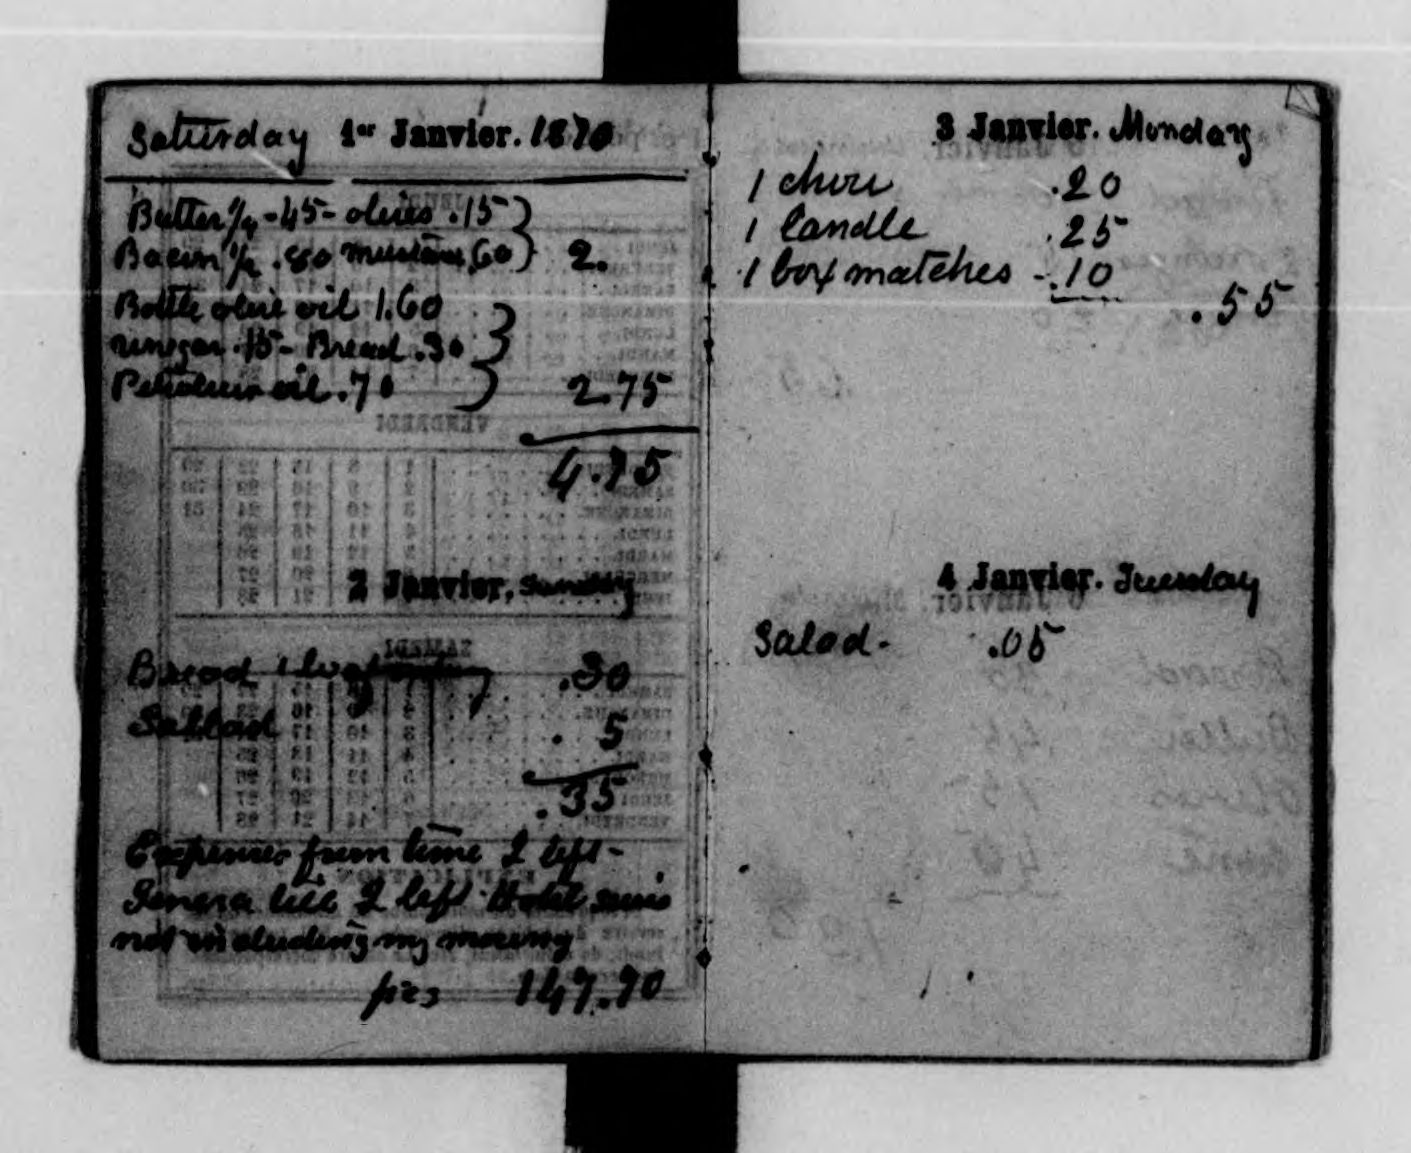 Saturday 1er Janvier. 1870
Butter 1/4 - 45 - olives .15
Bacon 1/2 .80 mustard .60 2.
Bottle olive oil 1.60
vinegar .15 - Bread .30
Petroleum oil .70 2.75
4.75
2 Janvier. Sunday
Bread 1 loaf .30
Sallad . 5
.35
Expenses from time I left
Geneva till I left Hotel
not including my moving
frcs 147.70
3 Janvier. Monday
1 chou .20
1 Candle .25
1 box matches - .10
.55
4 Janvier. Tuesday
Salad - .05